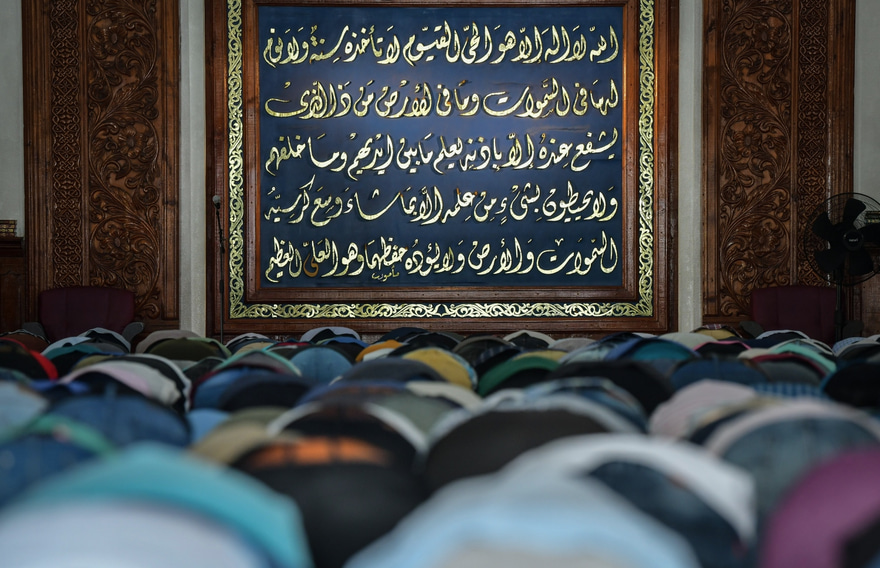 الله لا اله الا هو الحى القيوم لا تأخذه سنة ولا نوم
له ما فى السموات وما فى الأرض من ذا الذى
يشفع عنده إلا باذنه يعلم ما بين ايديهم وما خلفهم
ولا يحيطون بشىء من علمه الا بما شاء وسع كرسيه
السموات والأرض ولا يؤده حفظهما وهو العلى العظيم